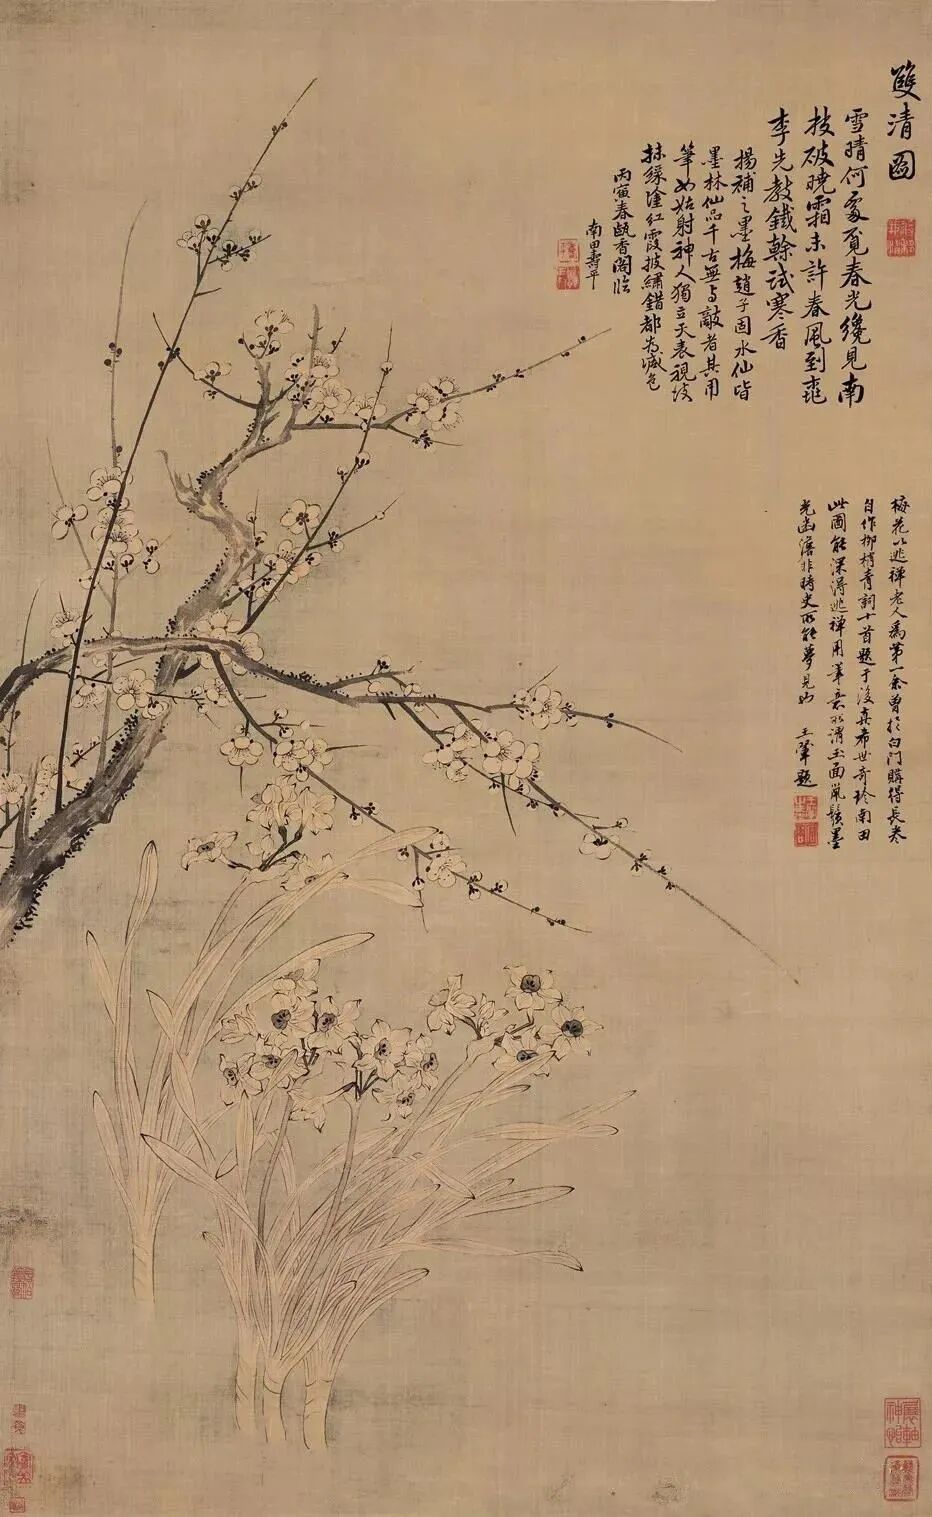 雙清圖
雪晴何處覓春光纔見南
枝破曉霜未許春風到桃
李先教鐵幹試寒香
揚補之墨梅趙子固水仙皆
墨林仙品千古無与敵者其用
筆如姑射神人獨立天表視塗
抹綠塗紅霞披繡錯都為減色
丙寅春甌香閣臨
南田壽平
梅花以逃禪老人為第一余曾於白門購得長卷
自作柳梢青詞十首題于後真希世奇珍南田
此圖能深得逃禪用筆意所謂玉面鼠鬚墨
光幽澹非時史所能夢見也 王翬題